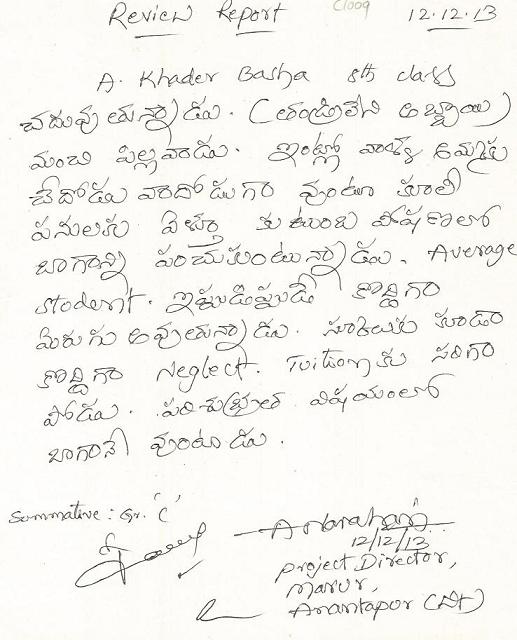 Review Report C1009 12.12.13
A. Khader Basha 8th class
చదువుతున్నాడు. (తండ్రిలేని అబ్బాయి)
మంచి పిల్లవాడు. ఇంట్లో వాళ్ళ అమ్మకు
చేదోడు వాదోడుగా వుంటూ కూలి
పనులకు వెళ్తూ కుటుంబ పోషణలో
బాగాన్ని పంచుకుంటున్నాడు. Average
student. ఇప్పుడిప్పుడే కొద్దిగా
మెరుగు అవుతున్నాడు. స్కూలుకు కూడా
కొద్దిగా Neglect. Tuition కు సరిగా
పోడు. పరిశుభ్రత విషయంలో
బాగానే వుంటాడు.
Summative : Gr. 'C'
12/12/13
Project Director,
Marur,
Anantapur (Dt)